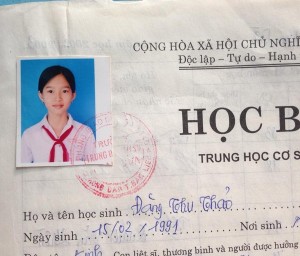 CỘNG HÒA XÃ HỘI CHỦ NGHĨ
Độc lập – Tự do – Hạnh
HỌC B
TRUNG HỌC CƠ S
Họ và tên học sinh : Đặng Thu Thảo
Ngày sinh : 15/02/1991 Nơi sinh
Con liệt sĩ, thương binh và người được hưởng